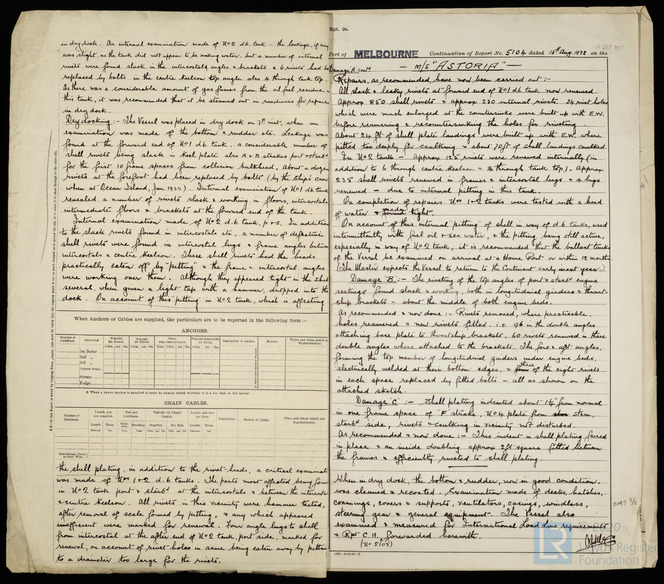 in dry dock. An internal examination made of No 2 d.b. tank - the leakage, if any
was slight as the tank did not appear to be making water, but a number of internal
rivets were found slack in the intercostal angles & brackets & 6 rivets had been
replaced by bolts in the centre keelson top angle also 4 through tank top.
As there was a considerable amount of gas fumes from the oil fuel residue in
this tank, it was recommended that it be steamed out in readiness for repairs
in dry dock.
Dry docking - The Vessel was placed in dry dock on 7th inst, when on
examination was made of the bottom & rudder etc. Leakage was
found at the forward end of No 1 d.b. tank. a considerable number of
shell rivets being slack in keel plate also A & B strakes port & starbd
for first 10 frame spaces from collision bulkhead, about a dozen
rivets at the forefoot had been replaced by bolts (by the ship's crew
when at Ocean Island, Jan 1932). Internal examination of No 1 d.b. tank
revealed a number of rivets slack & working in floors, intercostals
intermediate floors & brackets at the forward end of the tank.
Internal examination, made, of No 2 d.b. tank, p & s. In addition
to the slack rivets found in intercostals etc, a number of defective
shell rivets were found in intercostal lugs & frame angles between
intercostals & centre keelson. These shell rivets had the heads
practically eaten off by pitting & the frame & intercostal angles
were working slightly. Although they appeared tight in the shell
several, when given a light tap with a hammer, dropped into the
dock. On account of this pitting in No 2 tank, which is affecting
When Anchors or Cables are supplied, the particulars are to be reported in the following form:—
ANCHORS.
CHAIN CABLES.
the shell plating, in addition to the rivet-heads, a critical examination
was made of Nos 1 & 2 d.b. tanks. The parts most affected being found
in No 2 tank port & starbd at the intercostals & between the intercostals
& centre keelson. All rivets in this vicinity were hammer tested,
after removal of scale formed by pitting, & any which appeared
inefficient were marked for renewal. Four angle lugs to shell
from intercostal at the after end of No 2 tank, port side, marked for
renewal, on account of rivet holes in same being eaten away by pitting
to a diameter too large for the rivets.
Rpt. 9a.
Port of MELBOURNE Continuation of Report No. 5104 dated 15th Aug. 1932 on the
M/S "ASTORIA"
Damage A contd
Repairs, as recommended, have now been carried out:-
All slack & leaky rivets at forward end of No 1 d.b. tank now renewed.
Approx 850 shell rivets & approx 230 internal rivets. 34 rivet holes
which were much enlarged at the countersinks were built up with E.W.
before reamering & recountersinking the holes for riveting.
About 24 ft of shell plate landings were built up with E.W. where
pitted too deeply for caulking & about 70 ft of shell landings caulked.
In No 2 tank - Approx 125 rivets were renewed internally (in
addition to 6 through centre keelson & 4 through tank top). Approx
235 shell rivets renewed in frames & intercostal lugs & 4 lugs
renewed - due to internal pitting in this tank.
On completion of repairs Nos 1 & 2 tanks were tested with a head
of water & found tight.
On account of this internal pitting of shell in way of d.b. tanks, used
intermittently with fuel oil & sea water, & the pitting being still active,
especially in way of No 2 tank, it is recommended that the ballast tanks
of the Vessel be examined on arrival at a Home Port or within 12 months.
(The Master expects the Vessel to return to the Continent early next year)
Damage B:- The riveting of the top angles of port & starbd engine
seatings found slack & working both in longitudinal girders & thwart-
ship brackets - about the middle of both engine beds.
As recommended & now done:- Rivets removed, where practicable,
holes reamered & new rivets fitted. i.e. 96 in the double angles
attaching base plate to thwartship brackets, 60 rivets renewed in these
double angles where attached to the brackets. The fore & aft angles,
forming the top member of longitudinal girders under engine beds,
electrically welded at their bottom edges, & three of the eight rivets
in each space replaced by fitted bolts - all as shown on the
attached sketch.
Damage C:- Shell plating indented about 1¼ from normal
in one frame space of F strake, No 4 plate from stem,
starbd side, rivets & caulking in vicinity not disturbed.
As recommended & now done:- This indent in shell plating, faired
in place & an inside doubling approx 2 ft square fitted between
the frames & efficiently riveted to shell plating.
When in dry dock, the bottom & rudder, now in good condition,
was cleaned & recoated. Examination made of decks, hatches,
coamings, covers & supports, ventilators, casings, windlass,
steering gear & general equipment. The Vessel also
examined & measured for International Load line requirements
& Rpt C.11. forwarded herewith.
(No 5104)
Lloyd's Register
Foundation